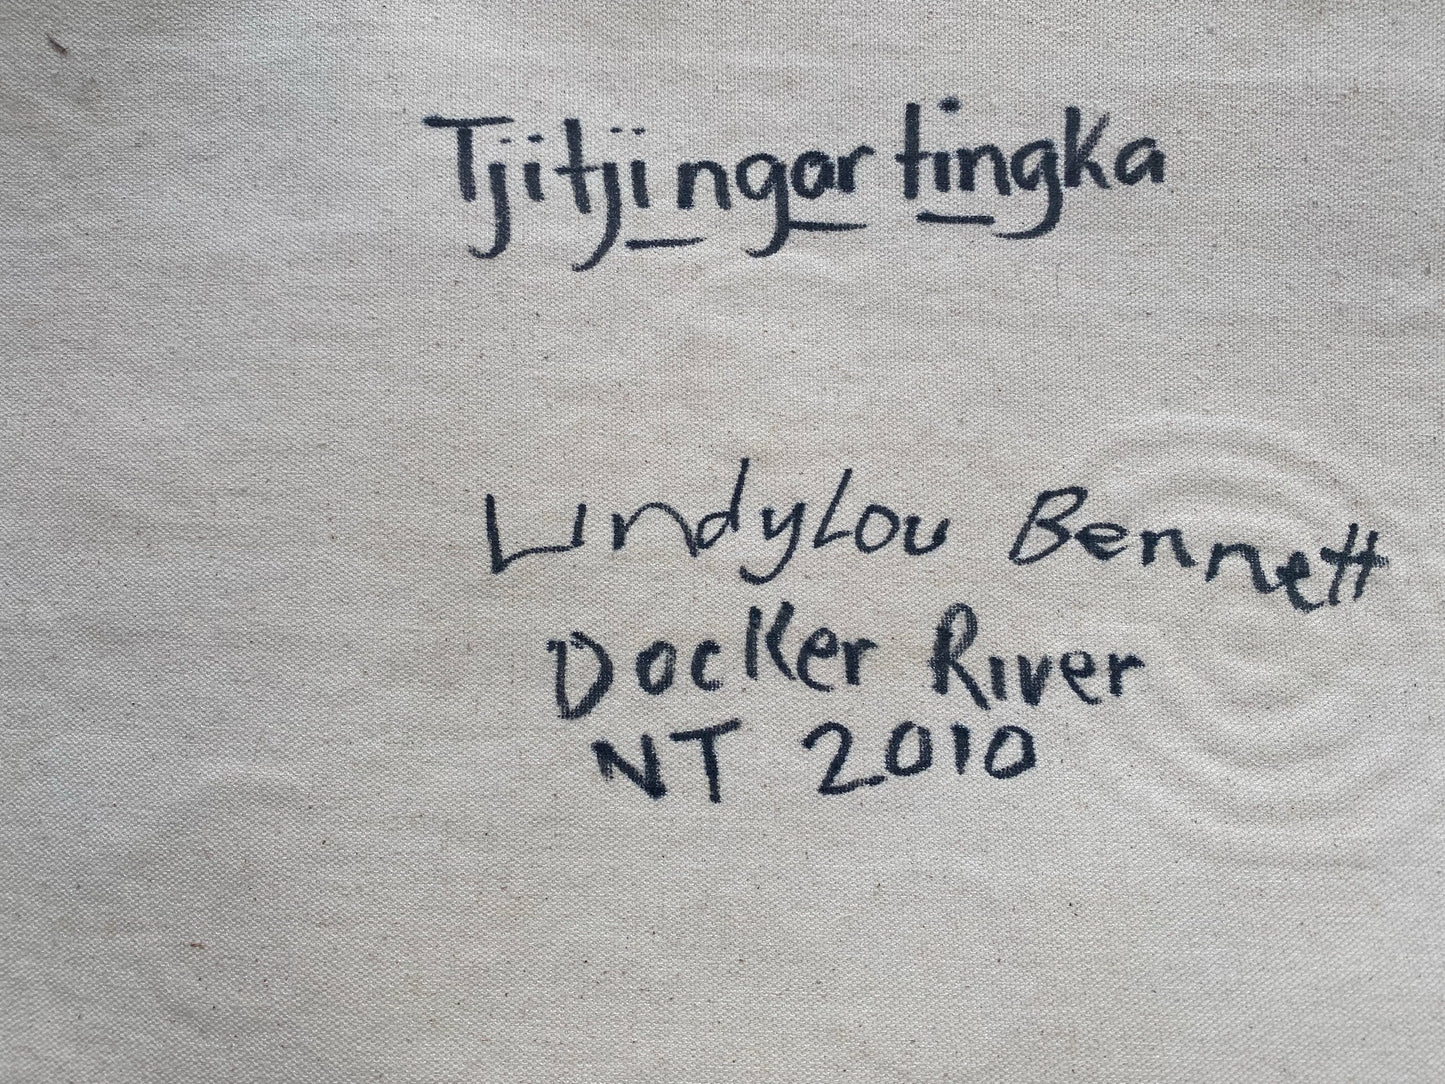 Tjitji ngar tingka
LindyLou Bennett
Docker River
NT 2010